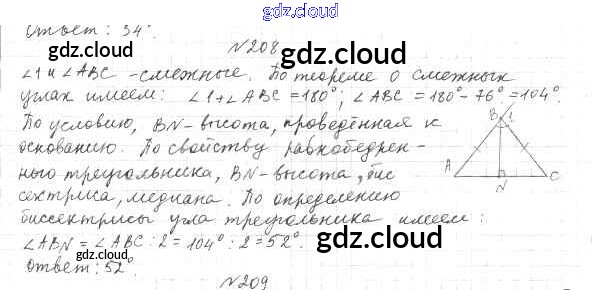 gdz.cloud
Ответ: 34°.
№208
gdz.cloud gdz.cloud
∠1 и ∠ABC - смежные. По теореме о смежных
углах имеем: ∠1+∠ABC=180°; ∠ABC=180°-76°=104°.
gdz.cloud gdz.cloud
По условию, BN-высота, проведённая к
основанию. По свойству равнобедрен-
ного треугольника, BN-высота, бис
сектриса, медиана. По определению
gdz.cloud
биссектрисы угла треугольника имеем:
∠ABN=∠ABC:2=104°:2=52°.
gdz.cloud
Ответ: 52°
№209
B 1
A N C